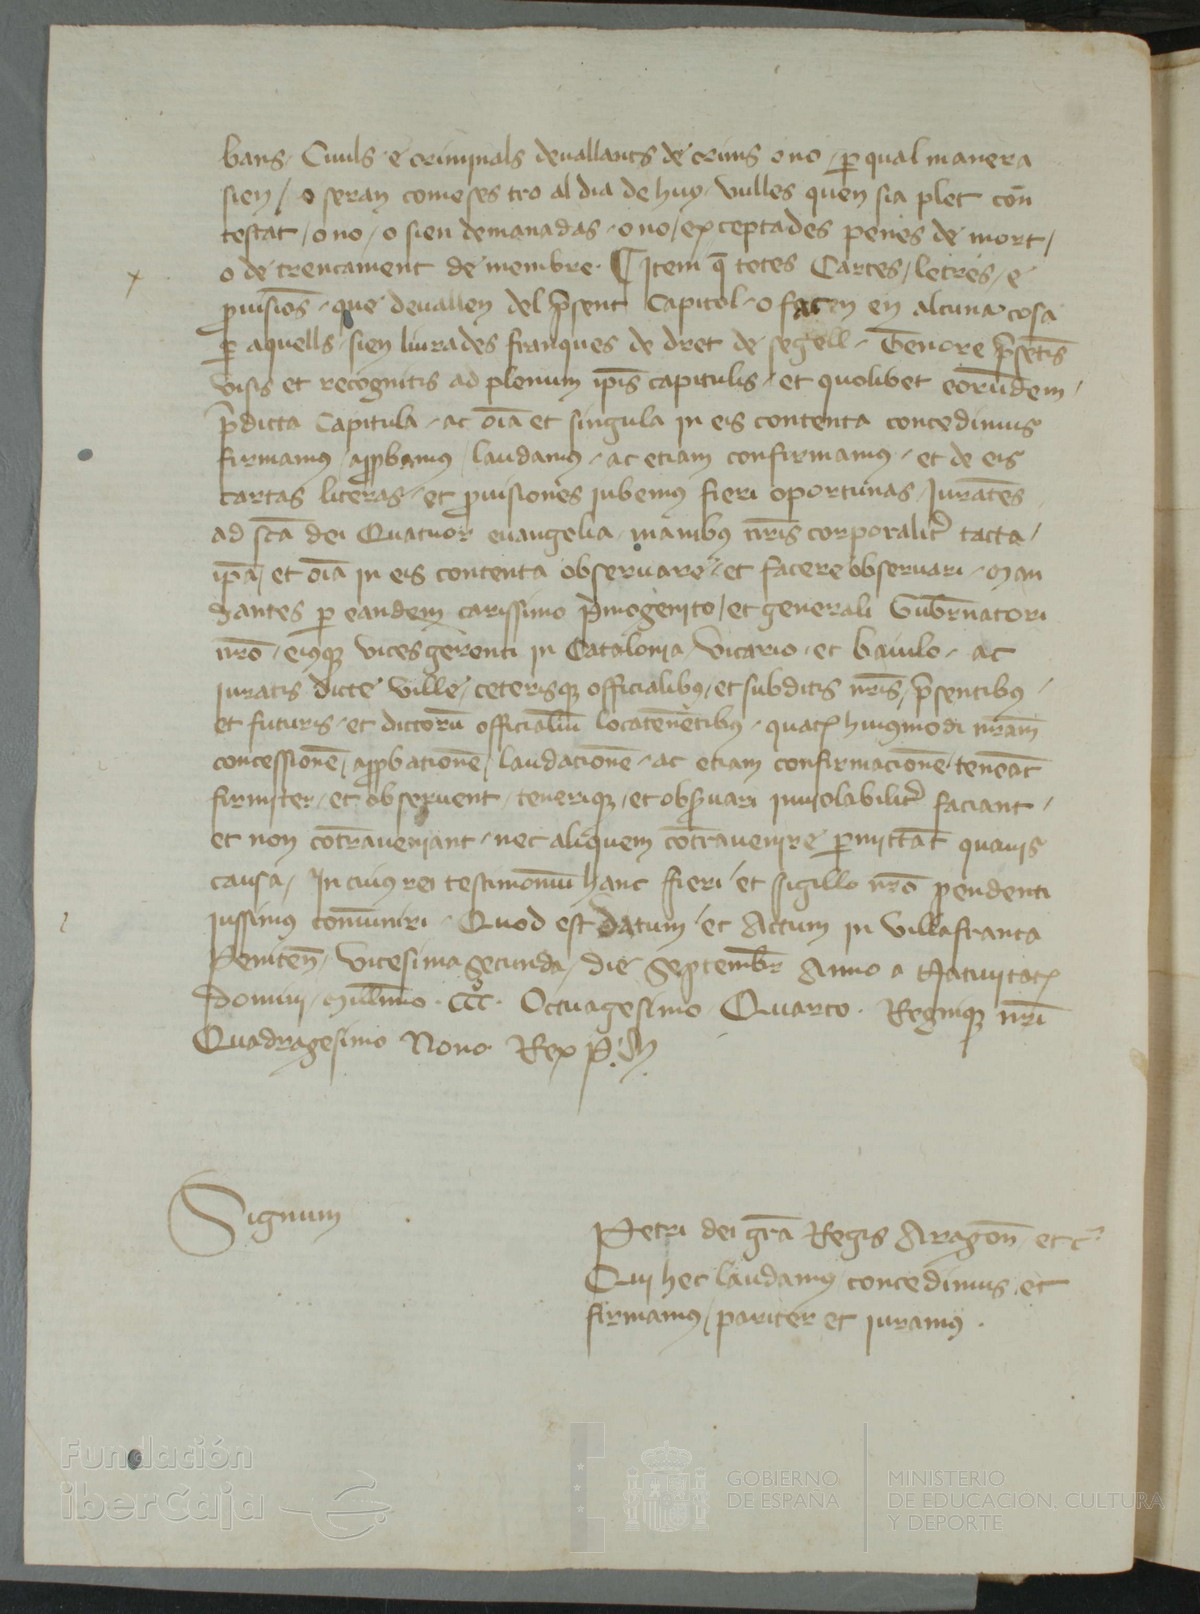 bans / Ciuils / e criminals deuallants de crims o no / p̱ qual manera
sien / o seran comeses tro al dia de huy / vulles quen sia plet con̄
testat / o no / o sien demanadas / o no / exceptades penes de mort /
o de trencament de membre · ¶ Item q̄ totes Cartes / letres / e
ꝓuisiōs / que deuallen del p̄sent Capitol / o facen en alcuna cosa
ꝑ aquells / sien liurades franques de dret de segell / Tenore p̄setis̄
visis et recognitis ad plenum ip̄is capitulis / et quolibet eorūdem /
p̄dicta Capitula / ac oīa et singula in eis contenta concedimus
firmamus / aꝓbamus / laudamus / ac etiam confirmamus / et de eis
cartas literas / et ꝓuisiones iubemus fieri oportunas / Iurātes
ad sc̄a dei Quatuor euangelia / manibus nr̄is corporalit̄ tacta /
ip̄a / et oīa in eis contenta obseruare / et facere obseruari / Man
dantes ꝑ eandem carissimo p̄mogenito / et generali Gub̄rnatori
nr̄o / eiusqꝫ vices gerenti in Catalonia / Vicario / et baiulo / ac
iuratis dicte ville / ceterisqꝫ officialibus / et subditis nr̄is / p̄sentibus /
et futuris / et dictorū officialiū locatenētibus / quatꝫ huiusmodi nr̄am
concessionē / aꝓbationē / laudacionē / ac etiam confirmacionē / teneāt
firmiter / et obseruent / teneriqꝫ / et obs̄uari inuiolabilit̄ faciant /
et non cōtraueniant / nec aliquem cōtrauenire ꝑmittāt quauis
causa / In cuius rei testimoniū hanc fieri / et sigillo nr̄o ꝑendenti
iussimus comūniri / Quod est datum / et Actum in Villafranca
Peniten̄ / Vicesima secunda / die Septembr̄ Anno a Natiuitatꝫ
domini / Mill̄imo · CCC · Octuagesimo / Quarto · Regniqꝫ nr̄i
Quadragesimo Nono · Rex P.
Signum
Petri dei gr̄a Regis Aragon̄ / etc̄
Qui hec laudamus / concedimus / et
firmamus / pariter et iuramus ·
Fundación
iberCaja
GOBIERNO
DE ESPAÑA
MINISTERIO
DE EDUCACIÓN, CULTURA
Y DEPORTE